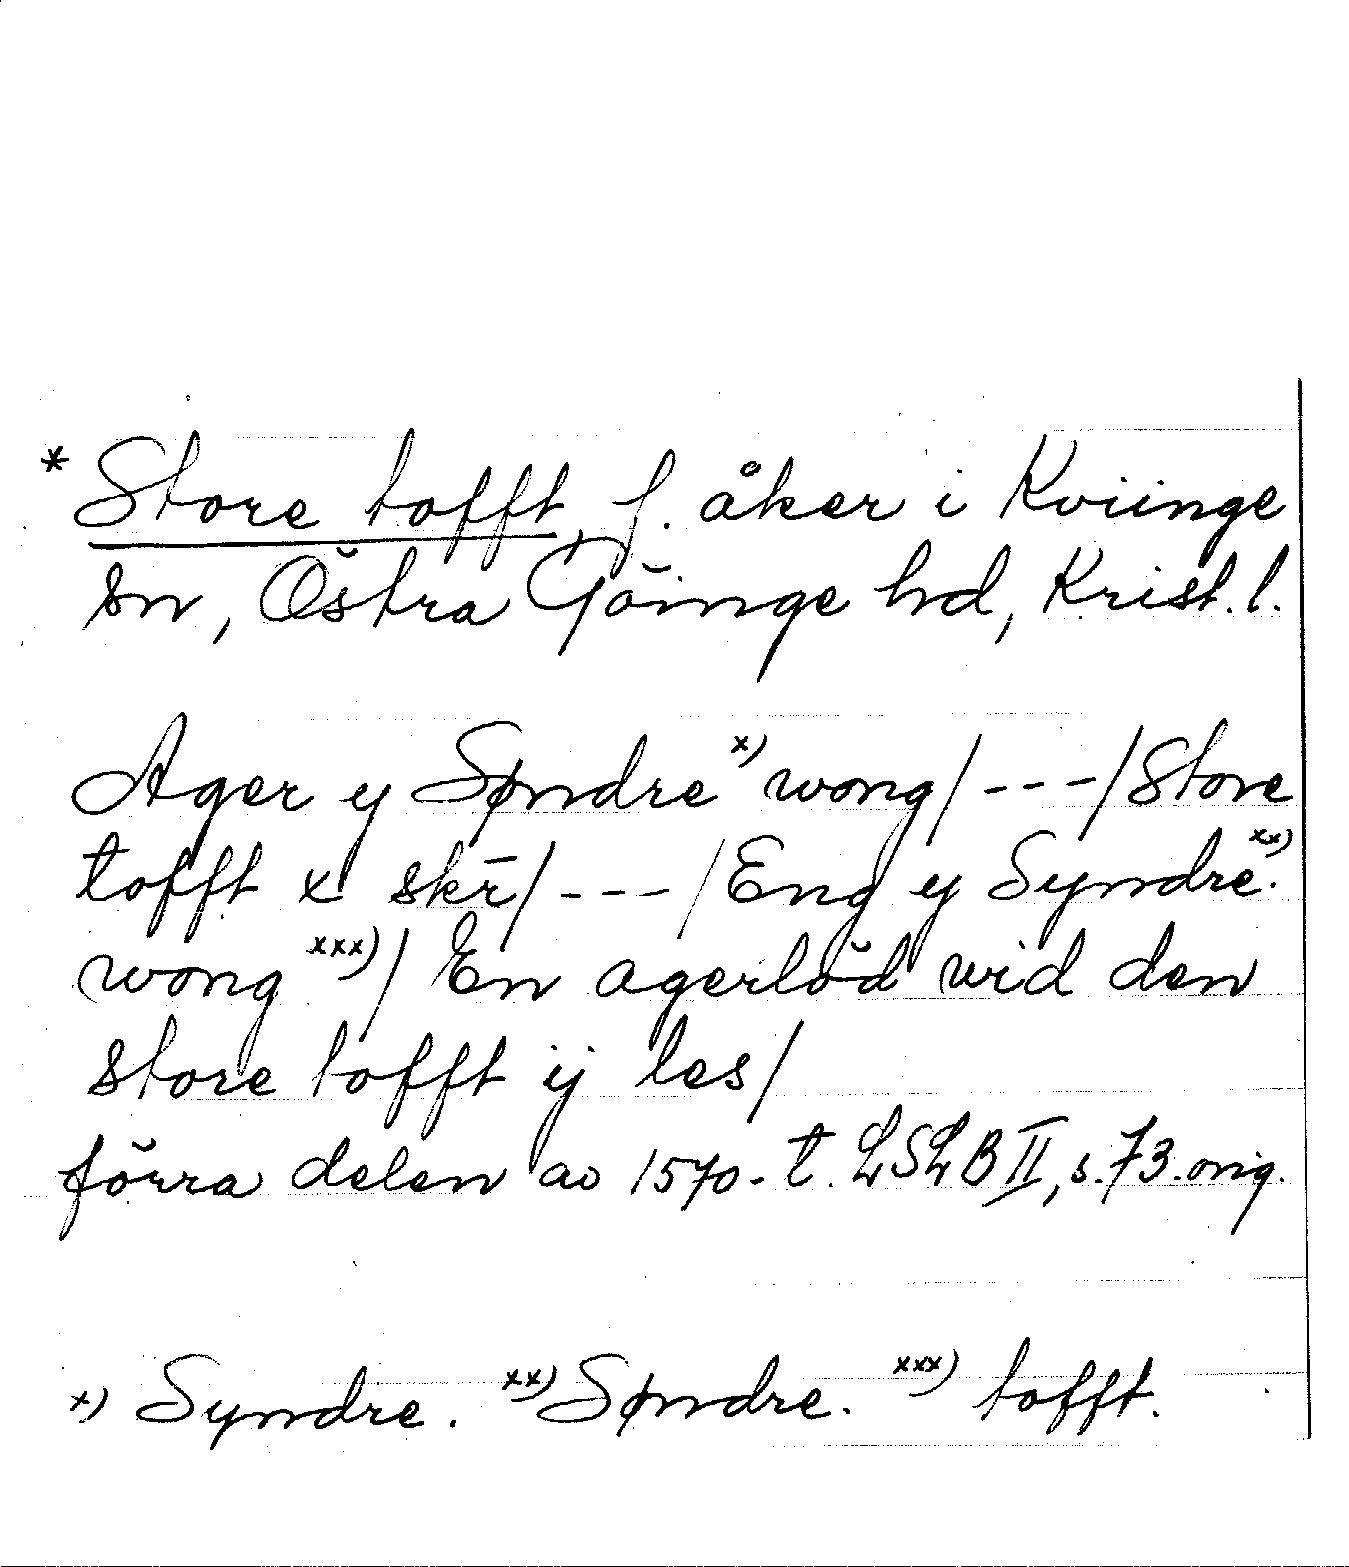 * Store tofft, f. åker i Kviinge
sn, Östra Göinge hd, Krist. l.
Ager y Søndre x) wong/---/Store
tofft x skr̄/---/Eng y Syndre. xx)
wong xxx)/ En agerlŏd wid den
store tofft ij les/
förra delen av 1570-t. LSLB II, s. 73. orig.
x) Syndre. xx) Søndre. xxx) tofft.